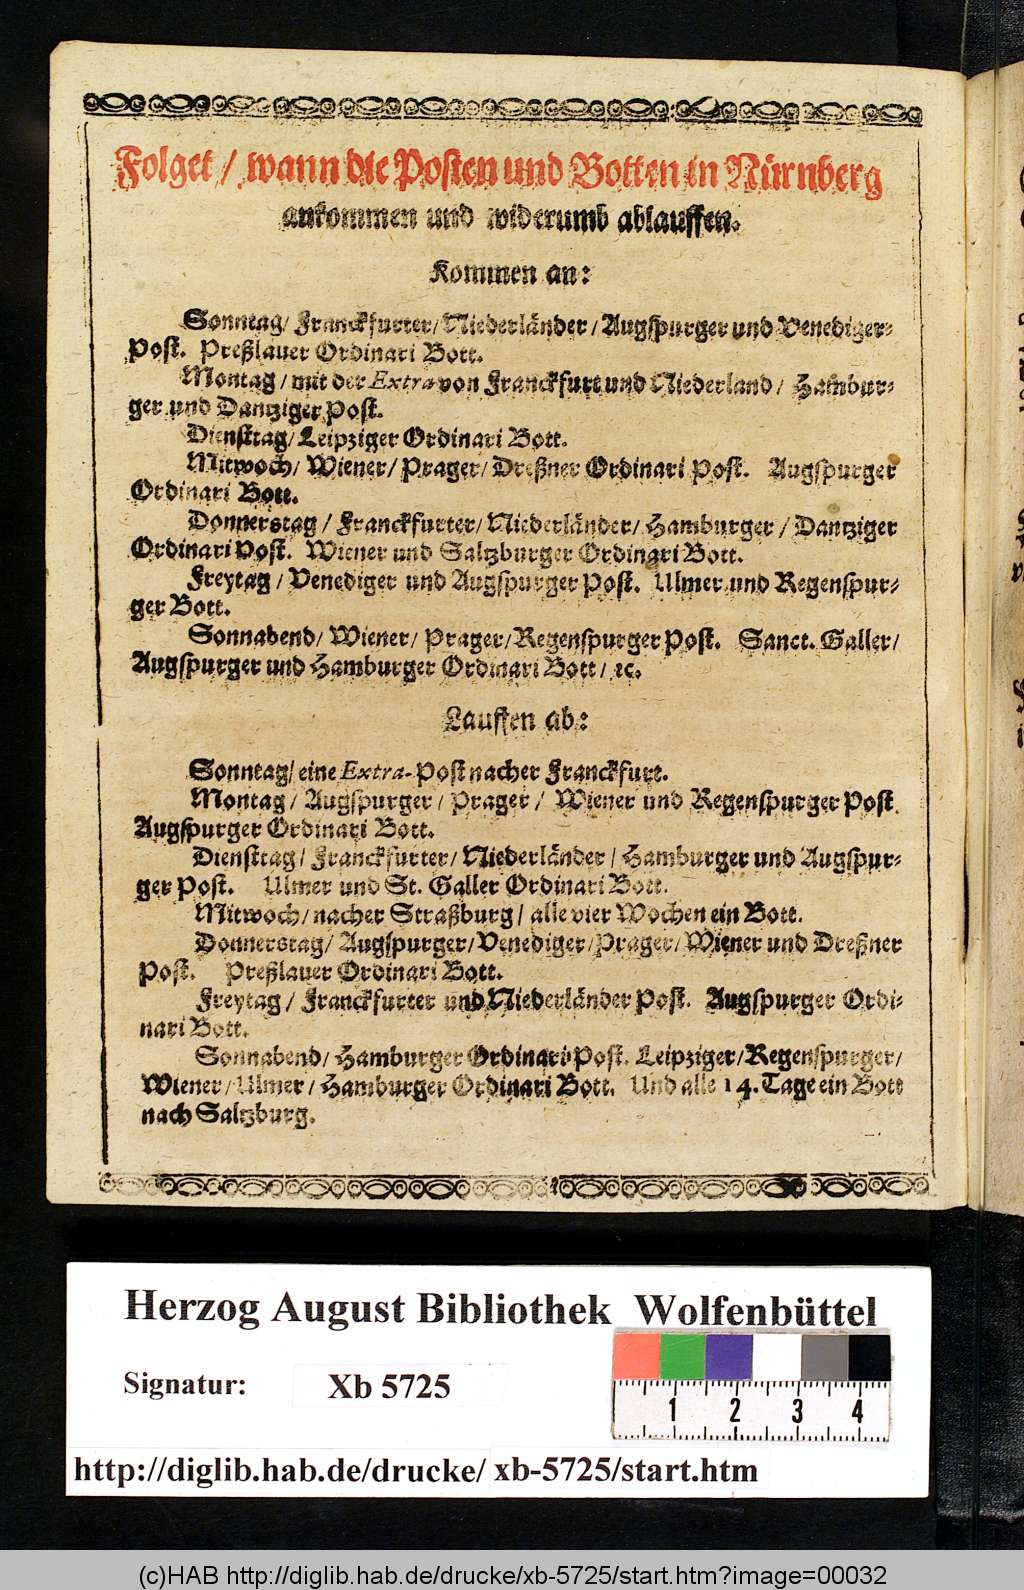 Folget / wann die Posten und Botten in Nürnberg
ankommen und widerumb ablauffen.
Kommen an:
Sonntag/ Franckfurter/ Niederländer / Augspurger und Venediger-
Post. Preßlauer Ordinari Bott.
Montag / mit der Extra von Franckfurt und Niederland / Hambur-
ger und Dantziger Post.
Diensttag/ Leipziger Ordinari Bott.
Mitwoch/ Wiener/ Prager/ Dreßner Ordinari Post. Augspurger
Ordinari Bott.
Donnerstag / Franckfurter/ Niederländer/ Hamburger / Dantziger
Ordinari Post. Wiener und Saltzburger Ordinari Bott.
Freytag / Venediger und Augspurger Post. Ulmer und Regenspur-
ger Bott.
Sonnabend/ Wiener/ Prager/ Regenspurger Post. Sanct. Galler/
Augspurger und Hamburger Ordinari Bott / ꝛc.
Lauffen ab:
Sonntag/ eine Extra-Post nacher Franckfurt.
Montag / Augspurger / Prager / Wiener und Regenspurger Post
Augspurger Ordinari Bott.
Diensttag/ Franckfurter/ Niederländer / Hamburger und Augspur-
ger Post. Ulmer und St. Galler Ordinari Bott.
Mitwoch/ nacher Straßburg/ alle vier Wochen ein Bott.
Donnerstag/ Augspurger/ Venediger/ Prager/ Wiener und Dreßner
Post. Preßlauer Ordinari Bott.
Freytag / Franckfurter und Niederländer Post. Augspurger Ordi-
nari Bott.
Sonnabend/ Hamburger Ordinari Post. Leipziger/ Regenspurger/
Wiener/ Ulmer/ Hamburger Ordinari Bott. Und alle 14. Tage ein Bott
nach Saltzburg.
Herzog August Bibliothek Wolfenbüttel
Signatur: Xb 5725
1 2 3 4
http://diglib.hab.de/drucke/ xb-5725/start.htm
(c)HAB http://diglib.hab.de/drucke/xb-5725/start.htm?image=00032